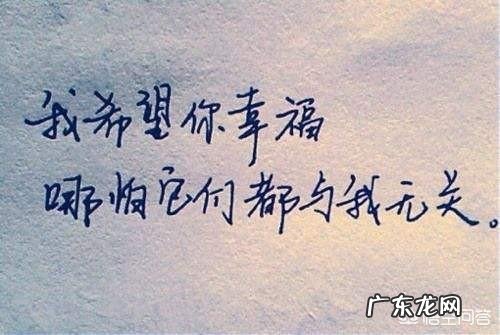 我希望你幸福
哪怕它们都与我无关。
广东龙网
悟空问答